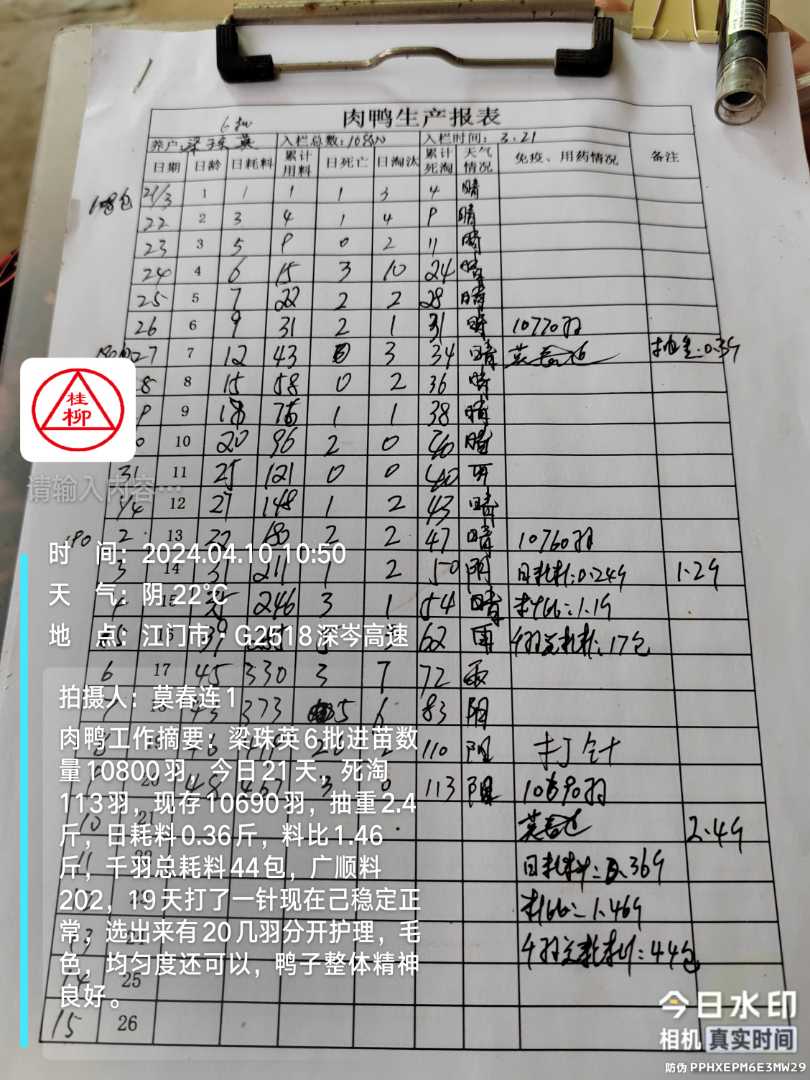 肉鸭生产报表
6批
养户: 梁珠英 入栏总数: 10800 入栏时间: 3.21
日期 日龄 日耗料 累计用料 日死亡 日淘汰 累计死淘 天气情况 免疫、用药情况 备注
21/3 1 1 1 1 3 4 晴
22 2 3 4 1 4 9 晴
23 3 5 9 0 2 11 晴
24 4 6 15 3 10 24 晴
25 5 7 22 2 2 28 晴
26 6 9 31 2 1 31 晴 10770羽
27 7 12 43 0 3 34 晴 莫春连
8 15 58 0 2 36 晴
9 18 76 1 1 38 晴
10 20 96 2 0 40 晴
31 11 25 121 0 0 40
1/4 12 27 148 1 2 43 晴
2 13 180 2 2 47 晴 10760羽
3 14 211 1 2 50 阴 日耗料:0.24斤 1.2斤
246 3 1 54 晴 料比:1.1斤
62 雨 千羽总耗料:17包
6 17 45 330 3 7 72 雨
373 5 6 83 阴
110 阴 打针
48 3 0 113 阴 10690羽
10 莫春连 2.4斤
11 日耗料:0.36斤
料比:1.46斤
千羽总耗料:44包
25
15 26
桂柳
请输入内容…
时 间: 2024.04.10 10:50
天 气: 阴 22℃
地 点: 江门市·G2518深岑高速
拍摄人: 莫春连1
肉鸭工作摘要: 梁珠英6批进苗数
量10800羽，今日21天，死淘
113羽，现存10690羽，抽重2.4
斤，日耗料0.36斤，料比1.46
斤，千羽总耗料44包，广顺料
202，19天打了一针现在己稳定正
常，选出来有20几羽分开护理，毛
色，均匀度还可以，鸭子整体精神
良好。
今日水印
相机 真实时间
防伪 PPHXEPM6E3MW29